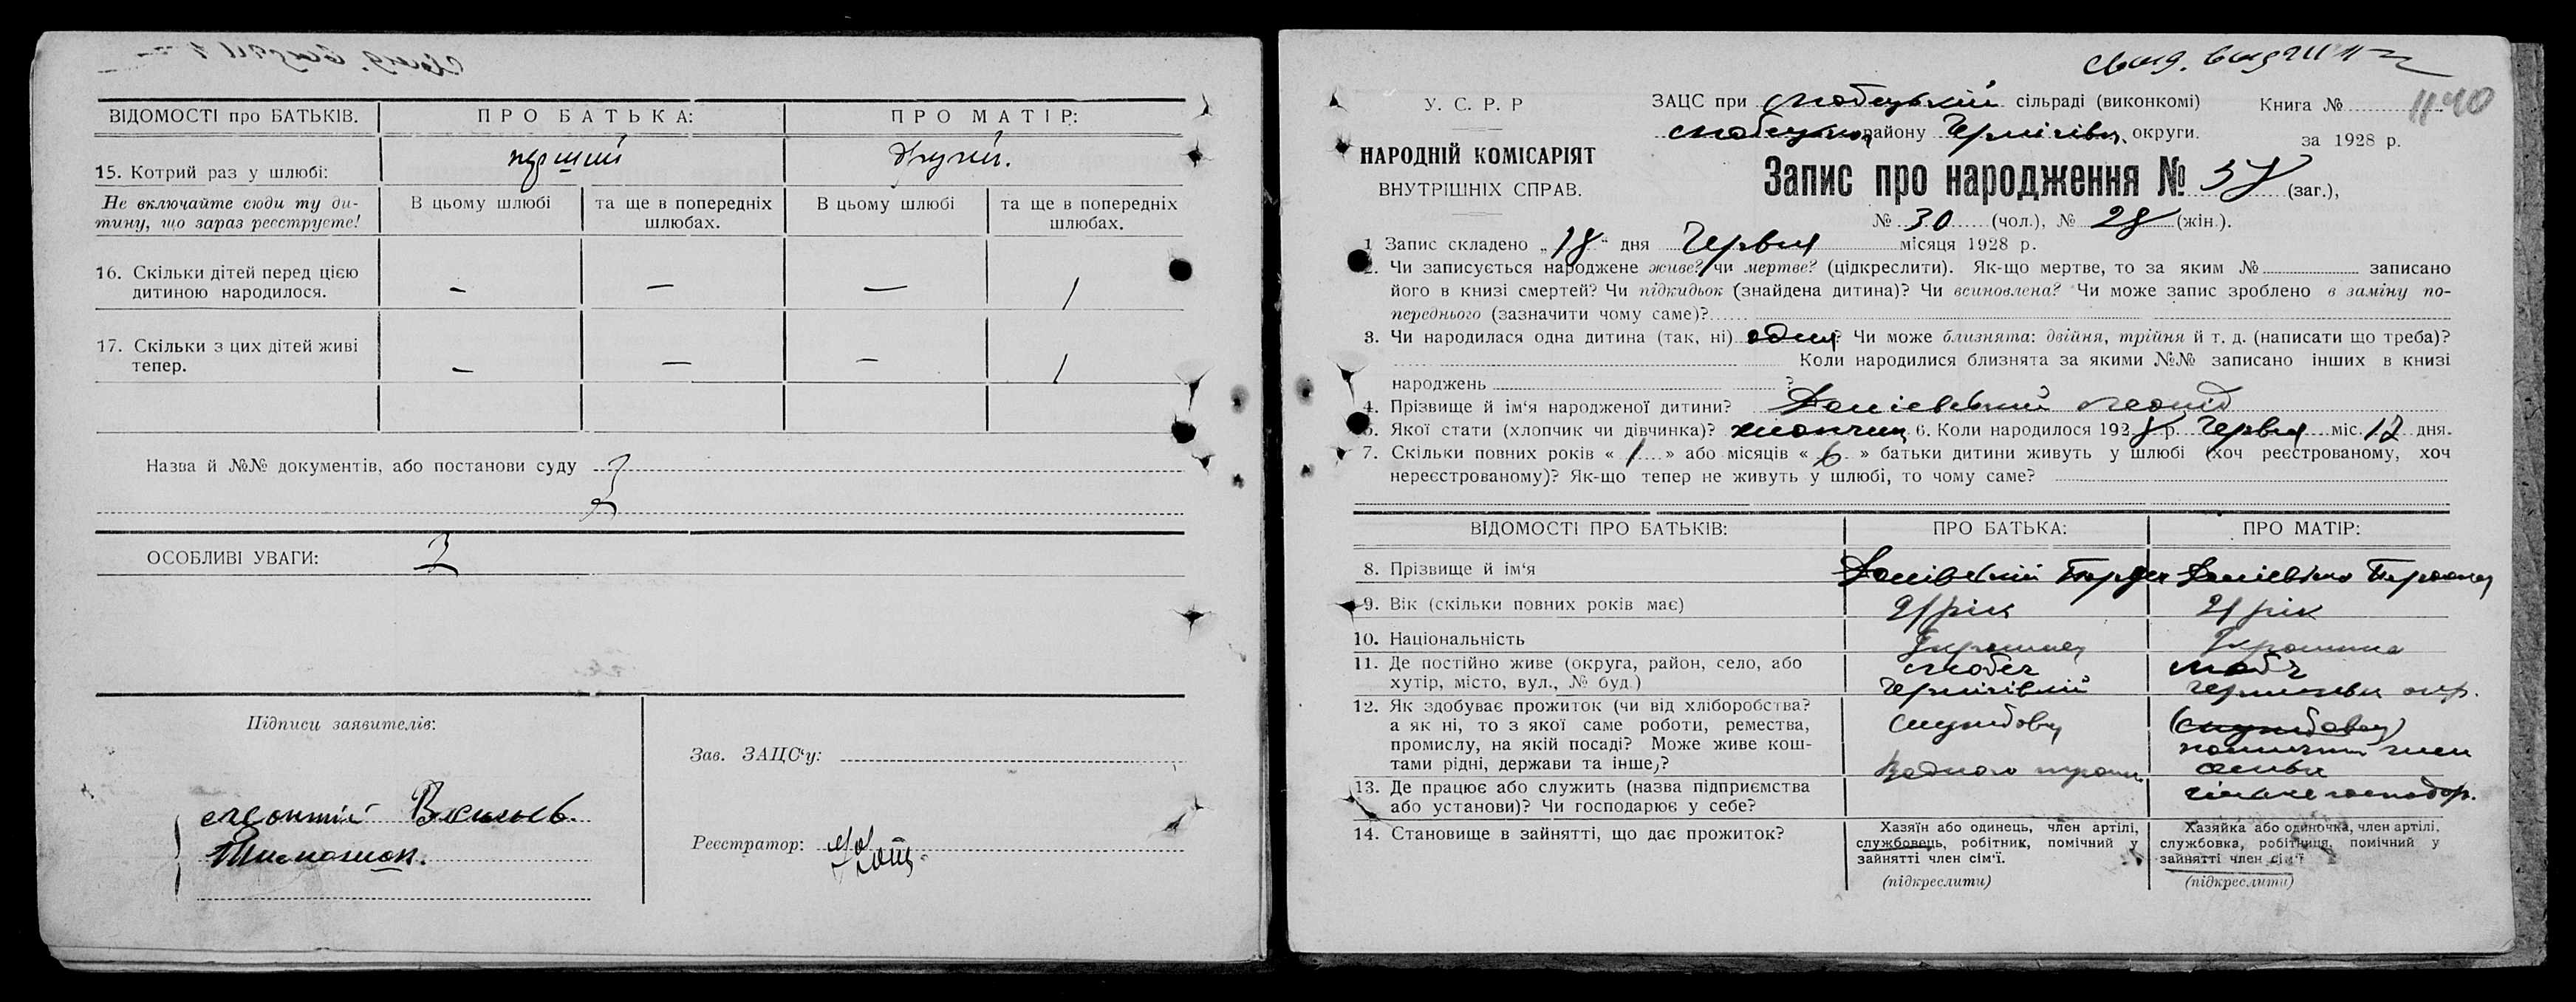 ВІДОМОСТІ про БАТЬКІВ.
ПРО БАТЬКА:
ПРО МАТІР:
15. Котрий раз у шлюбі:
перший
другий.
Не включайте сюди ту ди-
тину, що зараз реєструєте!
В цьому шлюбі
та ще в попередніх
шлюбах.
В цьому шлюбі
та ще в попередніх
шлюбах.
16. Скільки дітей перед цією
дитиною народилося.
— — — 1
17. Скільки з цих дітей живі
тепер.
— — — 1
Назва й №№ документів, або постанови суду
ОСОБЛИВІ УВАГИ:
Підписи заявителів:
Зав. ЗАЦС‘у:
Реєстратор:
У. С. Р. Р
НАРОДНІЙ КОМІСАРІЯТ
ВНУТРІШНІХ СПРАВ.
ЗАЦС при сільраді (виконкомі)
району округи.
Книга №
1140
за 1928 р.
Запис про народження № 58 (заг.),
№ 30 (чол.), № 28 (жін.).
1 Запис складено „18“ дня Червня місяця 1928 р.
2. Чи записується народжене живе? чи мертве? (цідкреслити). Як-що мертве, то за яким № записано
його в книзі смертей? Чи підкидьок (знайдена дитина)? Чи всиновлена? Чи може запис зроблено в заміну по-
переднього (зазначити чому саме)?
3. Чи народилася одна дитина (так, ні) одна? Чи може близнята: двійня, трійня й т. д. (написати що треба)?
Коли народилися близнята за якими №№ записано інших в книзі
народжень ?
4. Прізвище й ім‘я народженої дитини? Леонід
5. Якої стати (хлопчик чи дівчинка)? хлопчик 6. Коли народилося 1928 р. Червня міс. 12 дня.
7. Скільки повних років « 1 » або місяців « 6 » батьки дитини живуть у шлюбі (хоч реєстрованому, хоч
нереєстрованому)? Як-що тепер не живуть у шлюбі, то чому саме?
ВІДОМОСТІ ПРО БАТЬКІВ:
ПРО БАТЬКА:
ПРО МАТІР:
8. Прізвище й ім‘я
9. Вік (скільки повних років має)
21 рік
21 рік
10. Національність
Українец
Українка
11. Де постійно живе (округа, район, село, або
хутір, місто, вул., № буд.)
12. Як здобуває прожиток (чи від хліборобства?
а як ні, то з якої саме роботи, ремества,
промислу, на якій посаді? Може живе кош-
тами рідні, держави та інше,?
службовец
(службовец)
13. Де працює або служить (назва підприємства
або установи)? Чи господарює у себе?
14. Становище в зайнятті, що дає прожиток?
Хазяїн або одинець, член артілі,
службовець, робітник, помічний у
зайнятті член сім‘ї.
(підкреслити)
Хазяйка або одиночка, член артілі,
службовка, робітниця, помічний у
зайнятті член сім‘ї
(підкреслити)